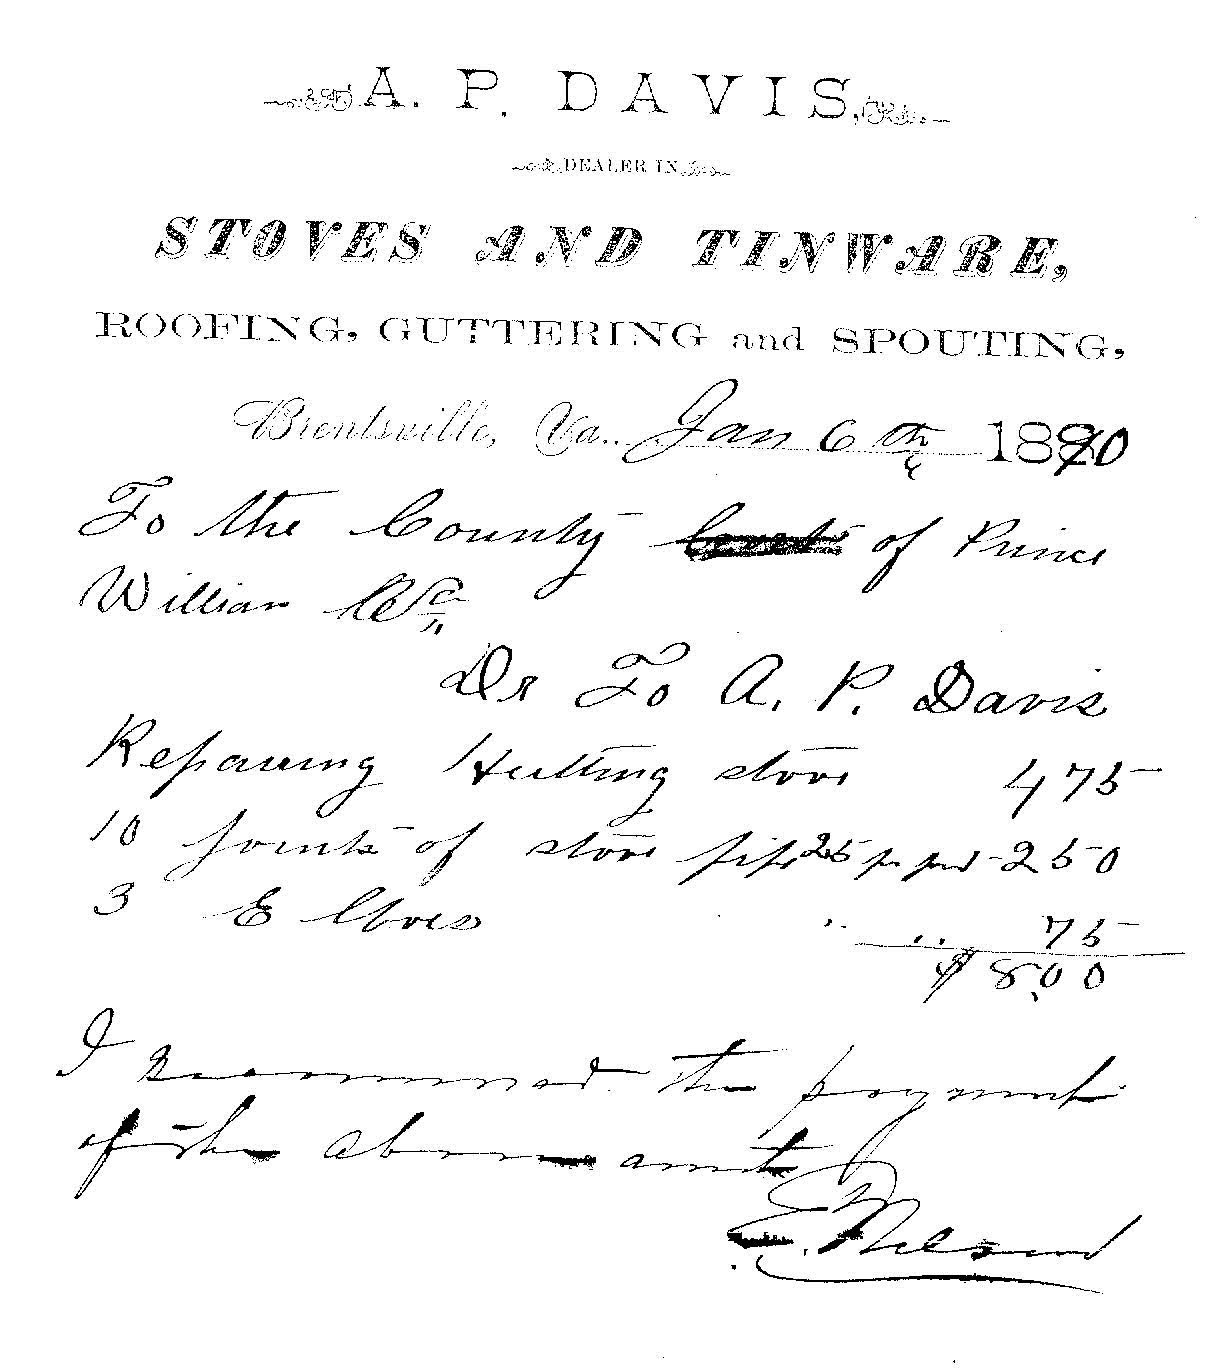 A. P. DAVIS,
DEALER IN
STOVES AND TINWARE,
ROOFING, GUTTERING and SPOUTING,
Brentsville, Va., Jan 6th 1890
To the County of Prince
William
Dr To A. P. Davis
Repairing Heatting stove 4 75
10 joints of stove pipe 25 2 50
3 Elboes " " 75
$8.00
I recommend the payment
of the above amt
E. Nelson